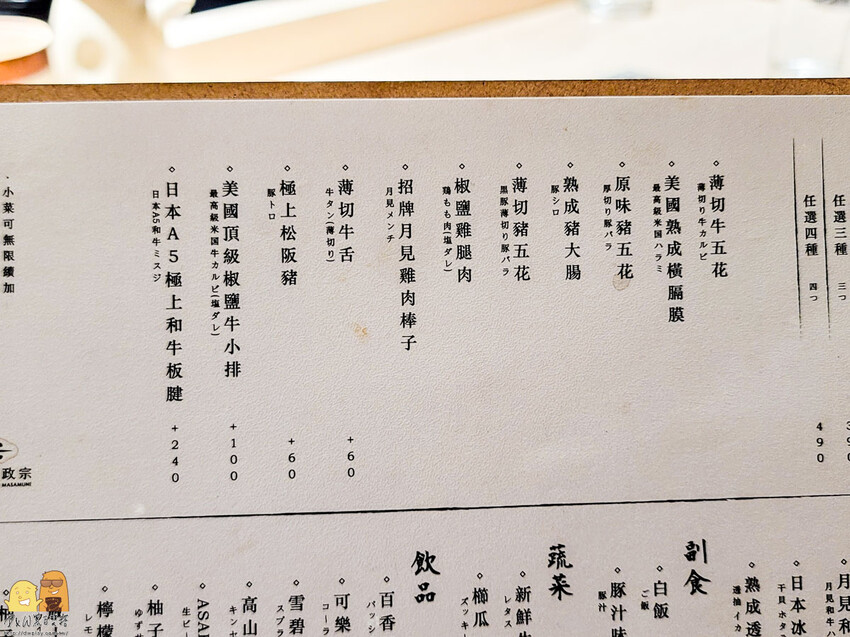 任選三種 三つ
任選四種 四つ 490
◇薄切牛五花
薄切り牛カルビ
◇美國熟成橫膈膜
最高級米国ハラミ
◇原味豬五花
厚切り豚バラ
◇熟成豬大腸
豚シロ
◇薄切豬五花
黒豚薄切り豚バラ
◇椒鹽雞腿肉
鶏もも肉(塩ダレ)
◇招牌月見雞肉棒子
月見メンチ
◇薄切牛舌 +60
牛タン(薄切り)
◇極上松阪豬 +60
豚トロ
◇美國頂級椒鹽牛小排 +100
最高級米国牛カルビ(塩ダレ)
◇日本A5極上和牛板腱 +240
日本A5和牛ミスジ
·小菜可無限續加
政宗
MASAMUNE
◇月見和
月見和牛ハ
◇日本冰
干貝ホタ
◇熟成透
透抽イカ
副食
◇白飯
ご飯
◇豚汁味
豚汁
蔬菜
◇新鮮生
レタス
◇櫛瓜
ズッキー
飲品
◇百香
パッシ
◇可樂
コーラ
◇雪碧
スプラ
◇高山
キンセ
◇ASA
生ビー
◇柚子
ゆずサ
◇檸檬
レモ